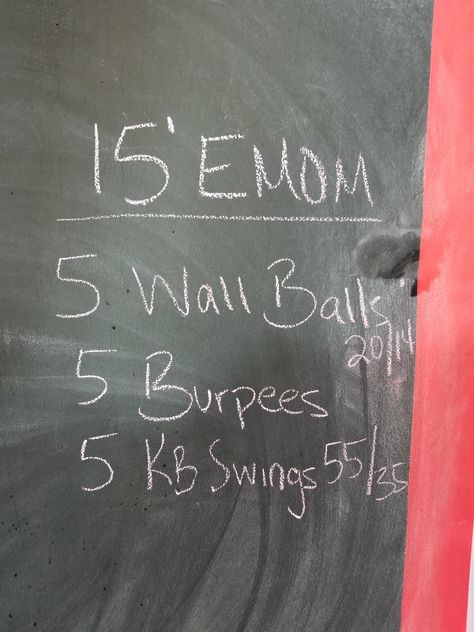 15' EMOM
5 Wall Balls
20/14
5 Burpees
5 KB Swings 55/35